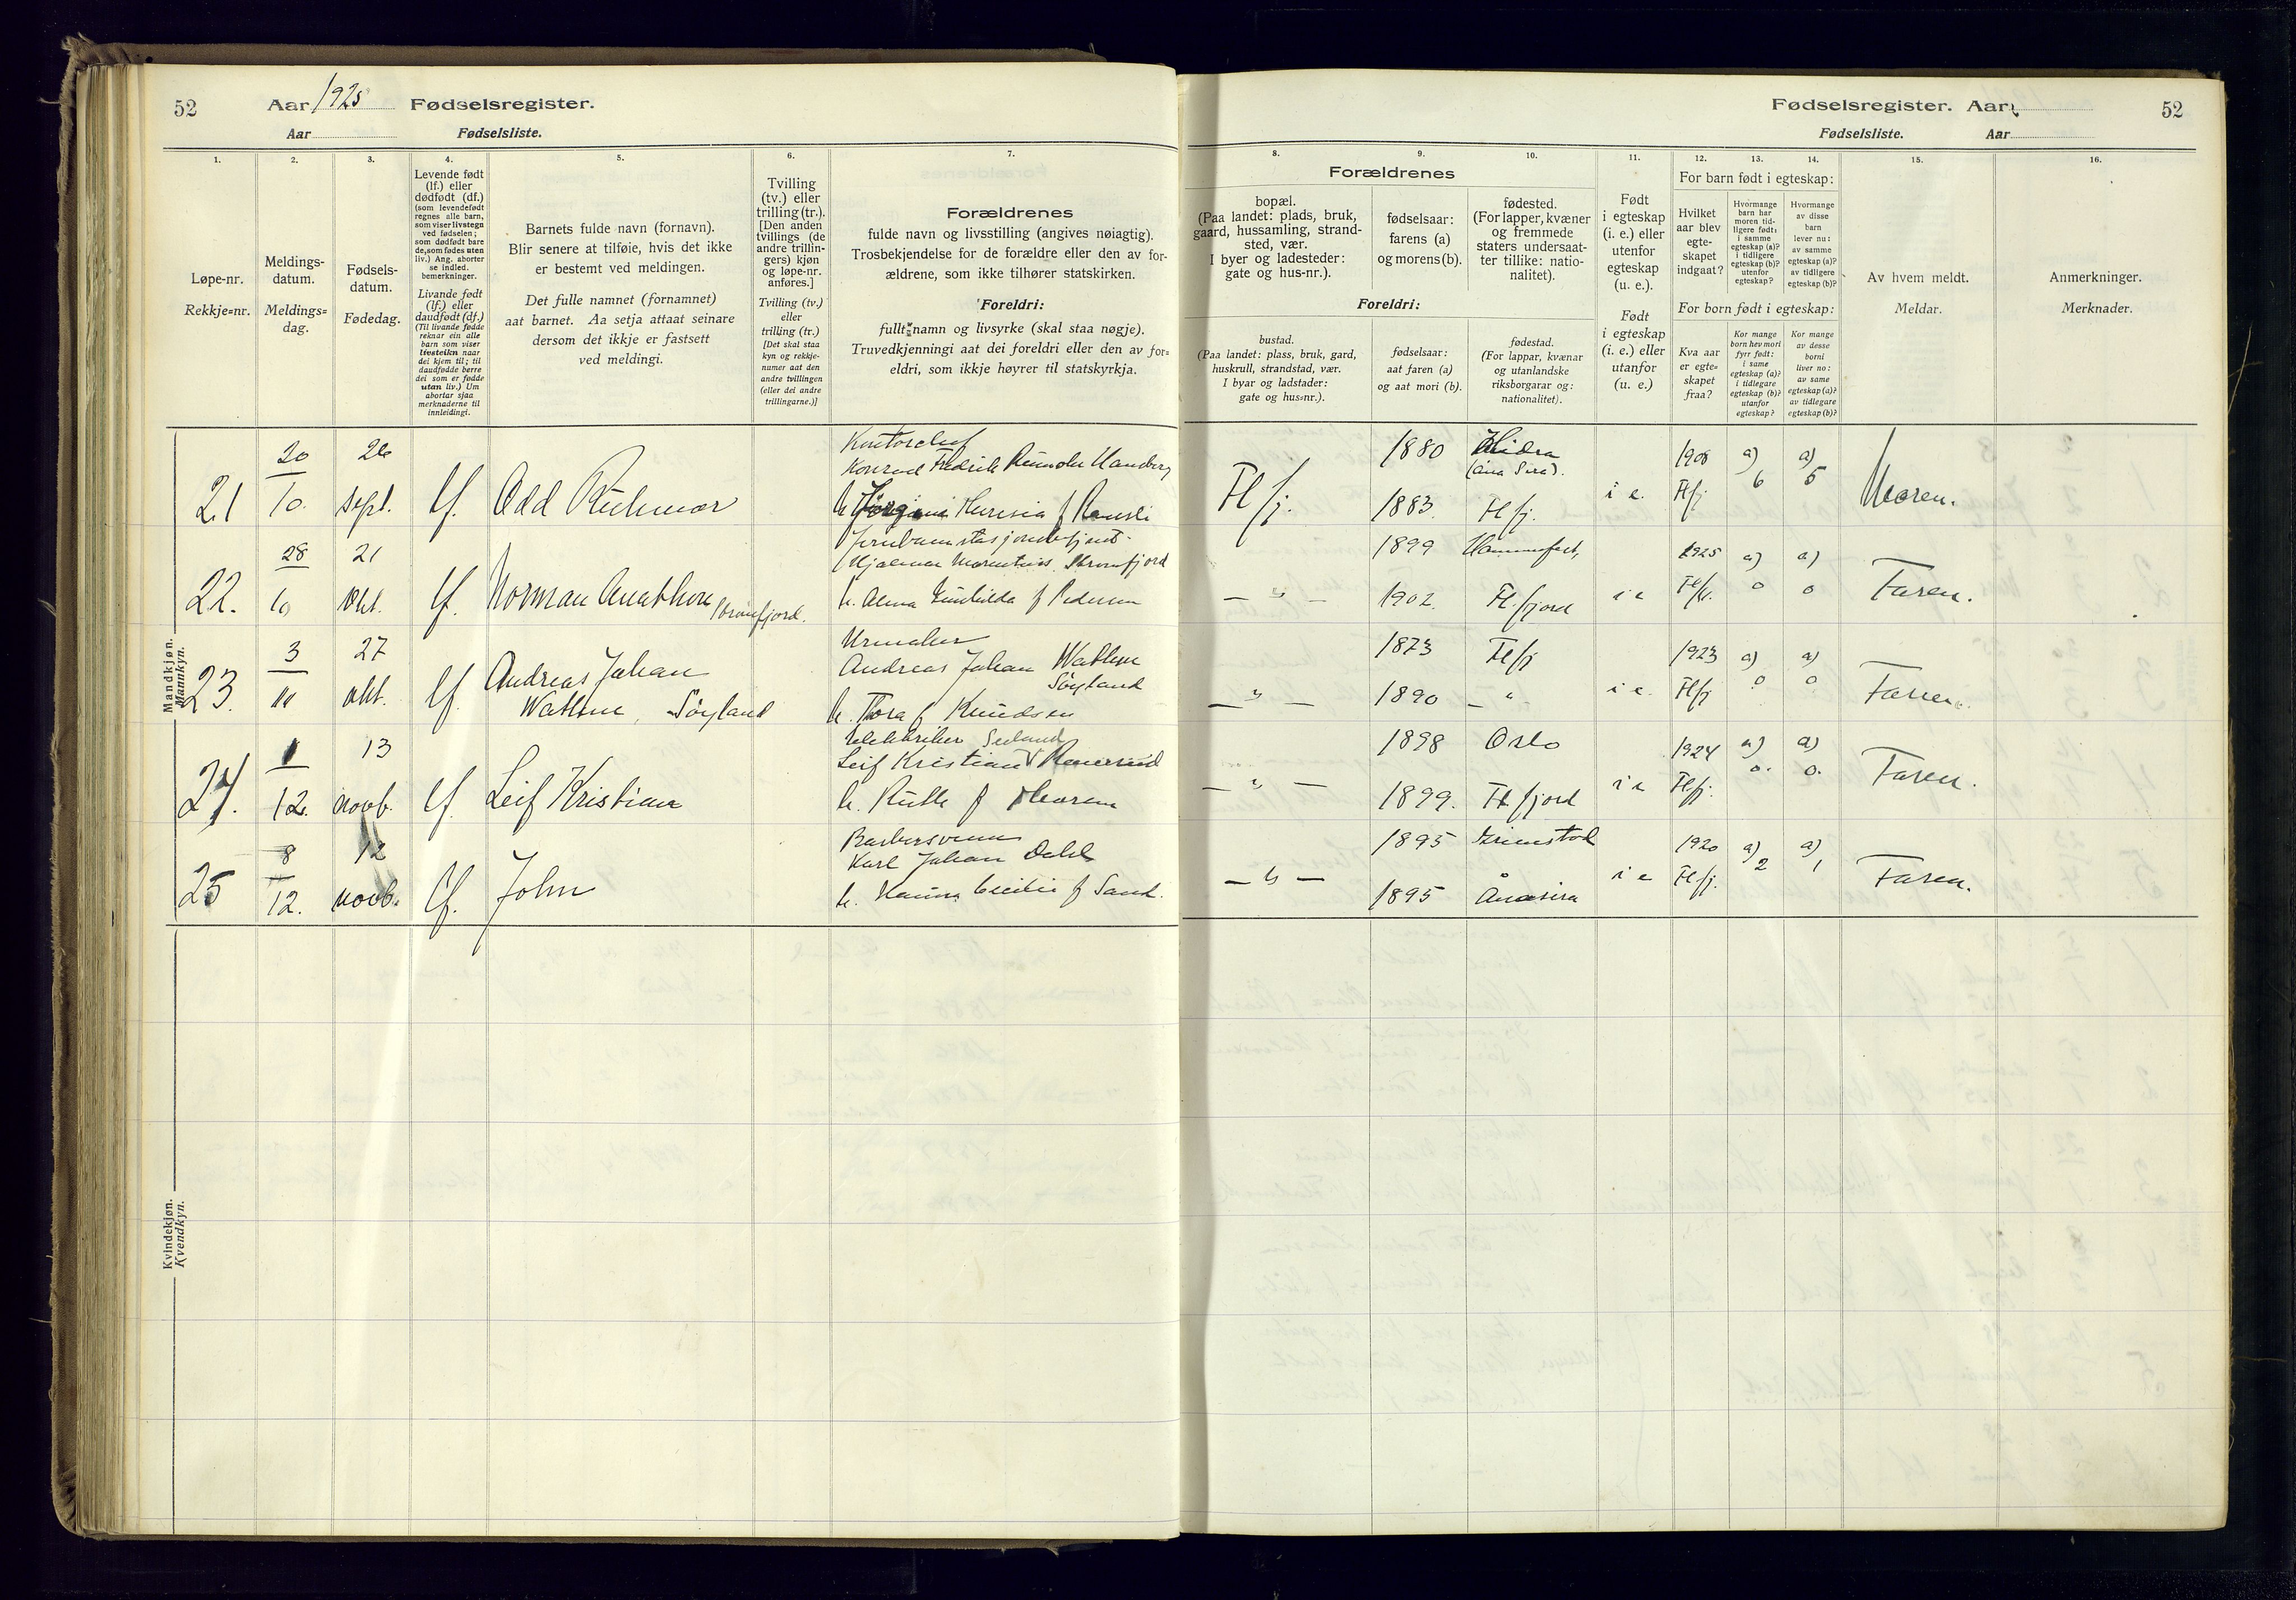 52 Aar 1925 Fødselsregister.
Aar Fødselsliste.
Fødselsregister. Aar 52
Fødselsliste. Aar
1. 2. 3. 4. 5. 6. 7.
Løpe-nr.
Rekkje=nr.
Meldings-
datum.
Meldings=
dag.
Fødsels-
datum.
Fødedag.
Levende født
(lf.) eller
dødfødt (df.)
(som levendefødt
regnes alle barn,
som viser livstegn
ved fødselen;
som dødfødt bare
de, som fødes uten
liv.) Ang. aborter
se indled.
bemerkninger.
Livande født
(lf.) eller
daudfødt (df.)
(Til livande fødde
reknar ein alle
barn som viser
livsteikn naar
dei kjem til; til
daudfødde berre
dei som er fødde
utan liv.) Um
abortar sjaa
merknaderne til
innleidingi.
Barnets fulde navn (fornavn).
Blir senere at tilføie, hvis det ikke
er bestemt ved meldingen.
Det fulle namnet (fornamnet)
aat barnet. Aa setja attaat seinare
dersom det ikkje er fastsett
ved meldingi.
Tvilling
(tv.) eller
trilling (tr.).
[Den anden
tvillings (de
andre trillin-
gers) kjøn
og løpe-nr.
anføres.]
Tvilling (tv.)
eller
trilling (tr.)
[Det skal staa
kyn og rekkje-
numer aat den
andre tvillingen
(eller dei andre
trillingarne.)]
Forældrenes
fulde navn og livsstilling (angives nøiagtig).
Trosbekjendelse for de forældre eller den av for-
ældrene, som ikke tilhører statskirken.
Foreldri:
fullt namn og livsyrke (skal staa nøgje).
Truvedkjenningi aat dei foreldri eller den av for=
eldri, som ikkje høyrer til statskyrkja.
8. 9. 10. 11. 12. 13. 14. 15. 16.
Forældrenes
bopæl.
(Paa landet: plads, bruk,
gaard, hussamling, strand-
sted, vær.
I byer og ladesteder:
gate og hus-nr.).
fødselsaar:
farens (a)
og morens (b).
fødested.
(For lapper, kvæner
og fremmede
staters undersaat-
ter tillike: natio-
nalitet).
Foreldri:
bustad.
(Paa landet: plass, bruk, gard,
huskrull, strandstad, vær.
I byar og ladstader:
gate og hus=nr.).
fødselsaar:
aat faren (a)
og aat mori (b).
fødestad.
(For lappar, kvænar
og utanlandske
riksborgarar og:
nationalitet).
Født
i egteskap
(i. e.) eller
utenfor
egteskap
(u. e.).
Født
i egteskap
(i. e.) eller
utanfor
(u. e.)
For barn født i egteskap:
Hvilket
aar blev
egte-
skapet
indgaat?
Hvormange
barn har
moren tid-
ligere født:
i samme
egteskap (a)?
i tidligere
egteskap (b)?
utenfor
egteskap?
Hvormange
av disse
barn
lever nu:
av samme
egteskap (a)?
av tidligere
egteskap (b)?
For born født i egteskap:
Kva aar
er egte=
skapet
fraa?
Kor mange
born hev mori
fyrr født:
i same
egteskap (a)?
i tidlegare
egteskap (b)?
utanfor
egteskap?
Kor mange
av desse
borni
liver no:
av same
egteskap (a)?
av tidlegare
egteskap (b)?
Av hvem meldt.
Meldar.
Anmerkninger.
Merknader.
Mandkjøn.
Mannkyn.
21 20/10. 26 sept. lf. Odd
h. f
Fl fj. 1880 Hidra
(Åna Sira).
1883. Fl fj. i e. Flfj. a) 6 a) 5 Moren.
22. 28/10 21 okt. lf. Norman
h. Alma f Pedersen
— " — 1899 Hammerfest,
1902. Fl.fjord i e 1925 a) 0 a) 0 Faren.
23. 3/11 27 okt. lf. Andreas Johan
Wathne Söyland
Urmaker
Andreas Johan Wathne
Söyland
h. Thora f Knudsen
— " — 1873 Fl fj
1890 — " i e. 1923 Flfj a) 0 a) 0 Faren.
24. 1/12. 13 novb. lf. Leif Kristian
Leif Kristian
h. Ruth f
— " — 1898 Oslo
1899. Fl fjord i e 1924 Flfj. a) 0. a) 0. Faren.
25 8/12. 12 novb. lf. John
Barbersvenn
Karl Johan Dahl
h. Hanna Cecilie f Sand.
— " — 1895 Grimstad
1895 Ånasira i e 1920 Flfj. a) 2 a) 1 Faren.
Kvindekjøn.
Kvendkyn.